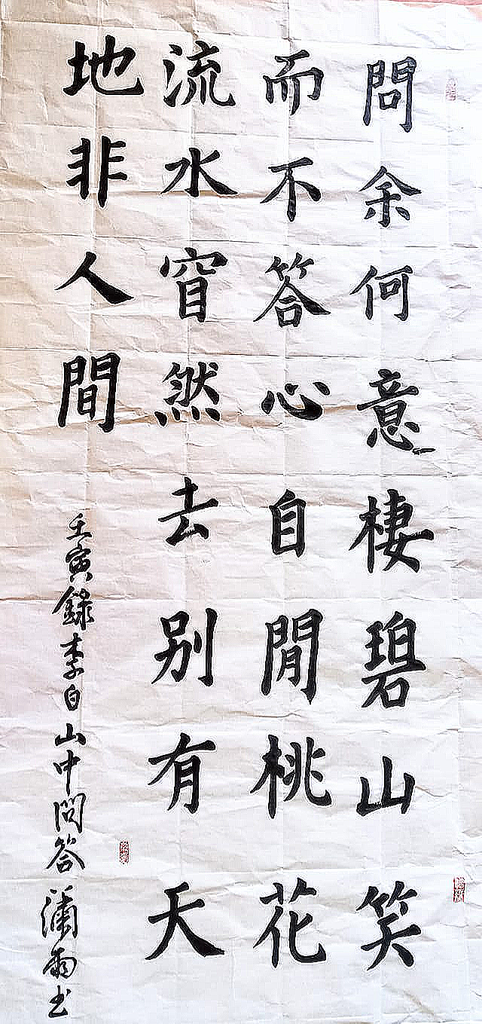 問余何意棲碧山笑
而不答心自閒桃花
流水窅然去别有天
地非人間
壬寅錄李白山中問答 瀟雨书